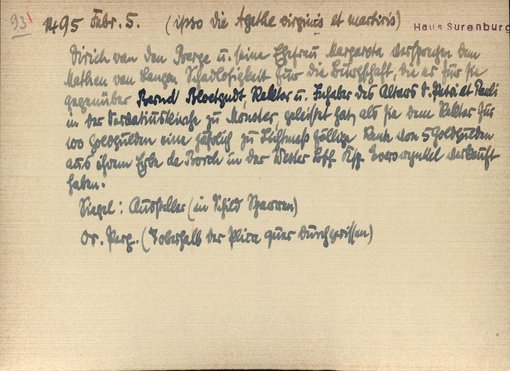 93
1495 Febr. 5. (ipso die Agathe virginis et martiris)
Haus Surenburg
Dirich van den Berge u. seine Ehefrau Margareta versprechen dem
Mathen van Langen Schadlosigkeit für die Bürgschaft, die er für sie
gegenüber Bernd Bloetgudt, Rektor u. Inhaber des Altars S. Petri et Pauli
in der Servatiuskirche zu Monster, geleistet hat, als sie dem Rektor für
100 Goldgulden eine jährlich zu Lichtmeß fällige Rente von 5 Goldgulden
aus ihrem Erbe de Borch in der Wester Ksp. verkauft
haben.
Siegel: Aussteller (in Schild Sparren)
Or. Perg. (oberhalb der Plica quer durchgerissen)